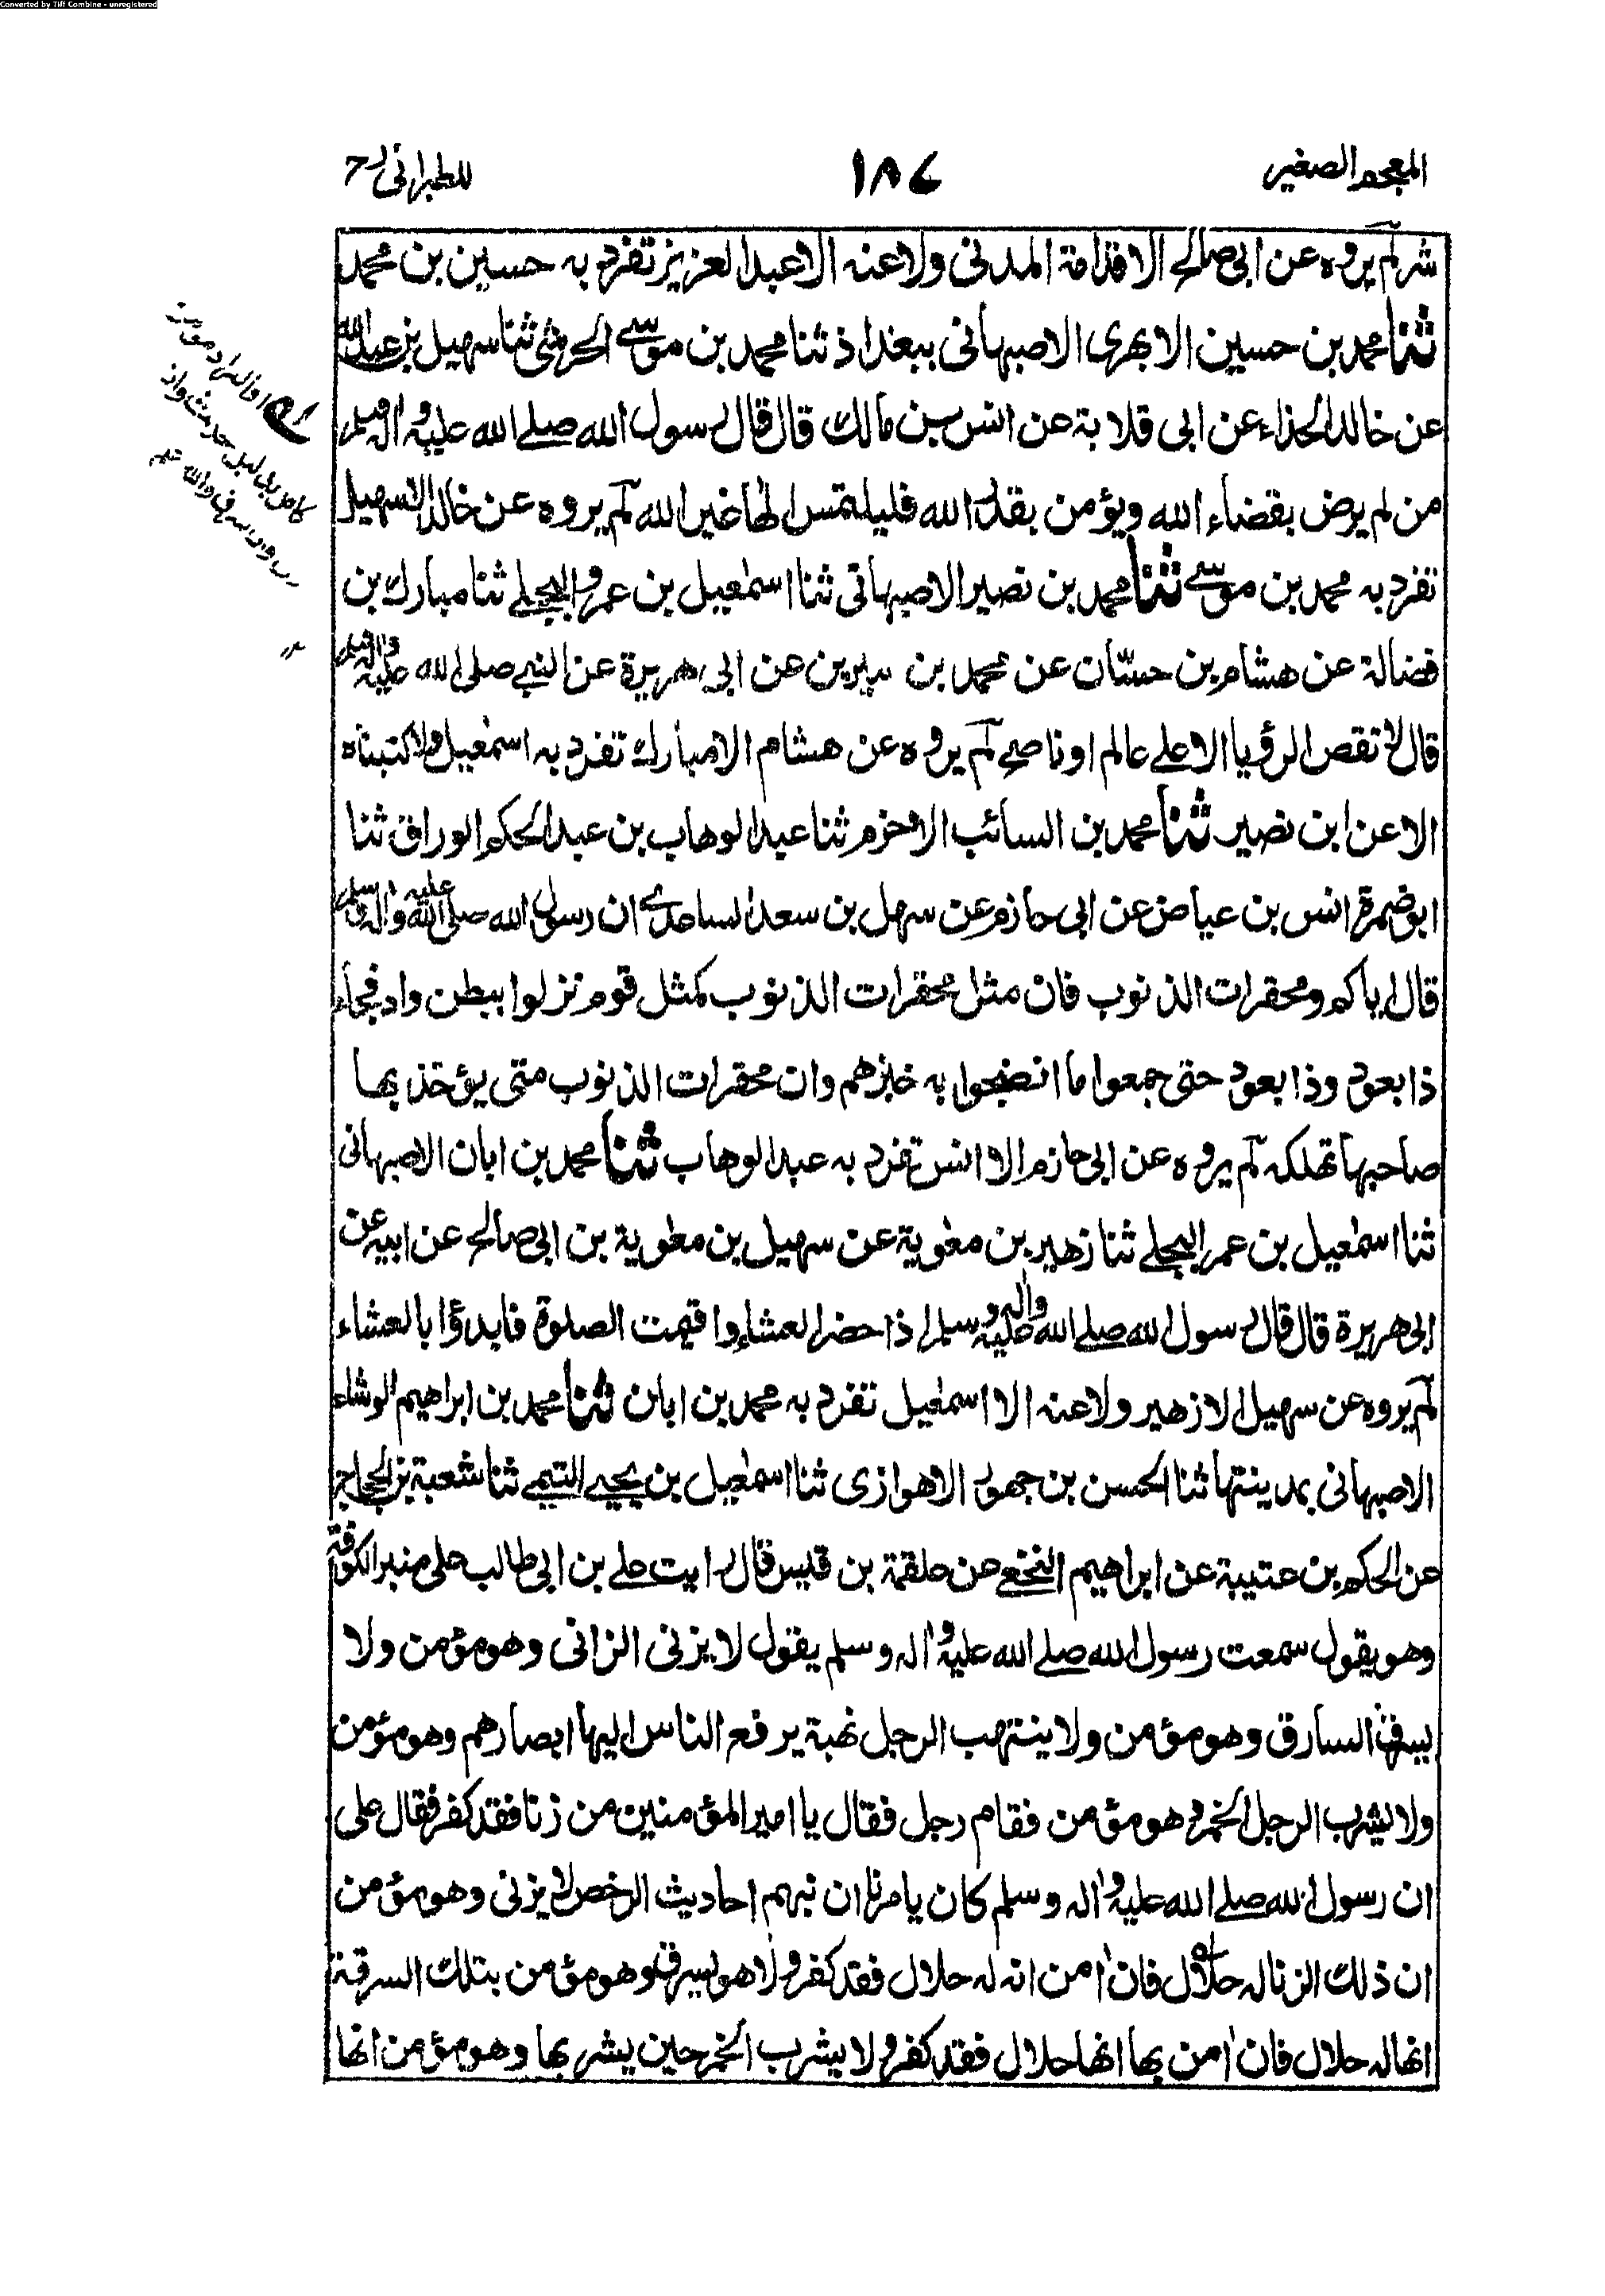 Converted by Tiff Combine - unregistered
المعجم الصغير
١٨٧
للطبرانی رح
شر لم يروه عن ابی صالح الا قدامة المدنی ولا عنه الا عبد العزيز تفرد به حسين بن محمد
ثنا محمد بن حسين الابهری الاصبهانی ببغداذ ثنا محمد بن موسے الحرشی ثنا سهيل بن عبد الله
عن خالد الحذاء عن ابی قلابة عن انس بن مالك قال قال رسول الله صلے الله عليه واله وسلم
من لم يرض بقضاء الله ويؤمن بقدر الله فليلتمس الها غير الله لم يروه عن خالد الا سهيل
تفرد به محمد بن موسے ثنا محمد بن نصير الاصبهانی ثنا اسمٰعيل بن عمرو البجلے ثنا مبارك بن
فضالة عن هشام بن حسّان عن محمد بن سيرين عن ابی هريرة عن النبے صلی الله عليه واله وسلم
قال لا تقص الرؤيا الا علے عالم او ناصح لم يروه عن هشام الا مبارك تفرد به اسمٰعيل ولا كتبناه
الا عن ابن نصير ثنا محمد بن السائب الاخرم ثنا عبد الوهاب بن عبد الحكم الوراق ثنا
ابو ضمرة انس بن عياض عن ابی حازم عن سهل بن سعد الساعدے ان رسول الله صلی الله عليه واله وسلم
قال اياكم ومحقرات الذنوب فان مثل محقرات الذنوب كمثل قوم نزلوا ببطن واد فجاء
ذا بعود وذا بعود حتی جمعوا ما انضجوا به خبزهم وان محقرات الذنوب متی يؤخذ بها
صاحبها تهلكه لم يروه عن ابی حازم الا انس تفرد به عبد الوهاب ثنا محمد بن ابان الاصبهانی
ثنا اسمٰعيل بن عمر البجلے ثنا زهير بن معٰوية عن سهيل بن معٰوية بن ابی صالح عن ابيه عن
ابی هريرة قال قال رسول الله صلے الله عليه واله وسلم اذا حضر العشاء واقيمت الصلوة فابدؤا بالعشاء
لم يروه عن سهيل الا زهير ولا عنه الا اسمٰعيل تفرد به محمد بن ابان ثنا محمد بن ابراهيم الوشاء
الاصبهانی بمدينتها ثنا الحسن بن جهور الاهوازی ثنا اسمٰعيل بن يحيے التيمے ثنا شعبة بن الحجاج
عن الحكم بن عتيبة عن ابراهيم النخعے عن علقمة بن قيس قال رايت علے بن ابی طالب علی منبر الكوفة
وهو يقول سمعت رسول الله صلے الله عليه واله وسلم يقول لا يزنی الزانی وهو مؤمن ولا
يسرق السارق وهو مؤمن ولا ينتهب الرجل نهبة يرفع الناس اليها ابصارهم وهو مؤمن
ولا يشرب الرجل الخمر وهو مؤمن فقام رجل فقال يا امير المؤمنين من زنا فقد كفر فقال علی
ان رسول الله صلے الله عليه واله وسلم كان يامرنا ان نبهم احاديث الرخص لا يزنی وهو مؤمن
ان ذلك الزنا له حلال فان اٰمن انه له حلال فقد كفر ولا هو يسرق وهو مؤمن بتلك السرقة
انها له حلال فان اٰمن بها انها حلال فقد كفر ولا يشرب الخمر حين يشربها وهو مؤمن انها